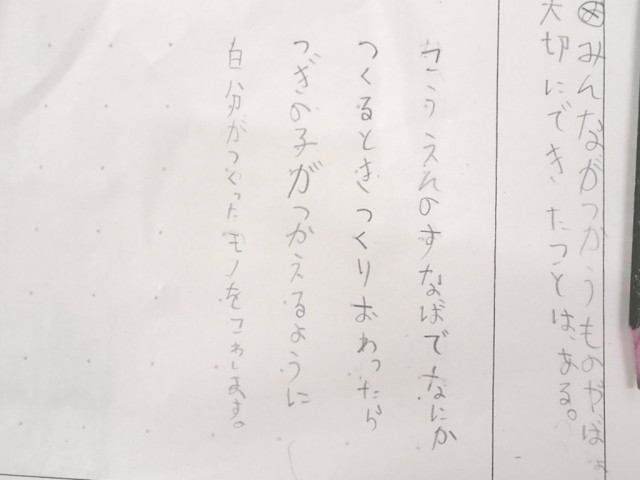 ㋱みんながつかうものやばしょ
大切にできたことは、ある。
こうえんのすなばでなにか
つくるときつくりおわったら
つぎの子がつかえるように
自分がつくったモノをこわします。